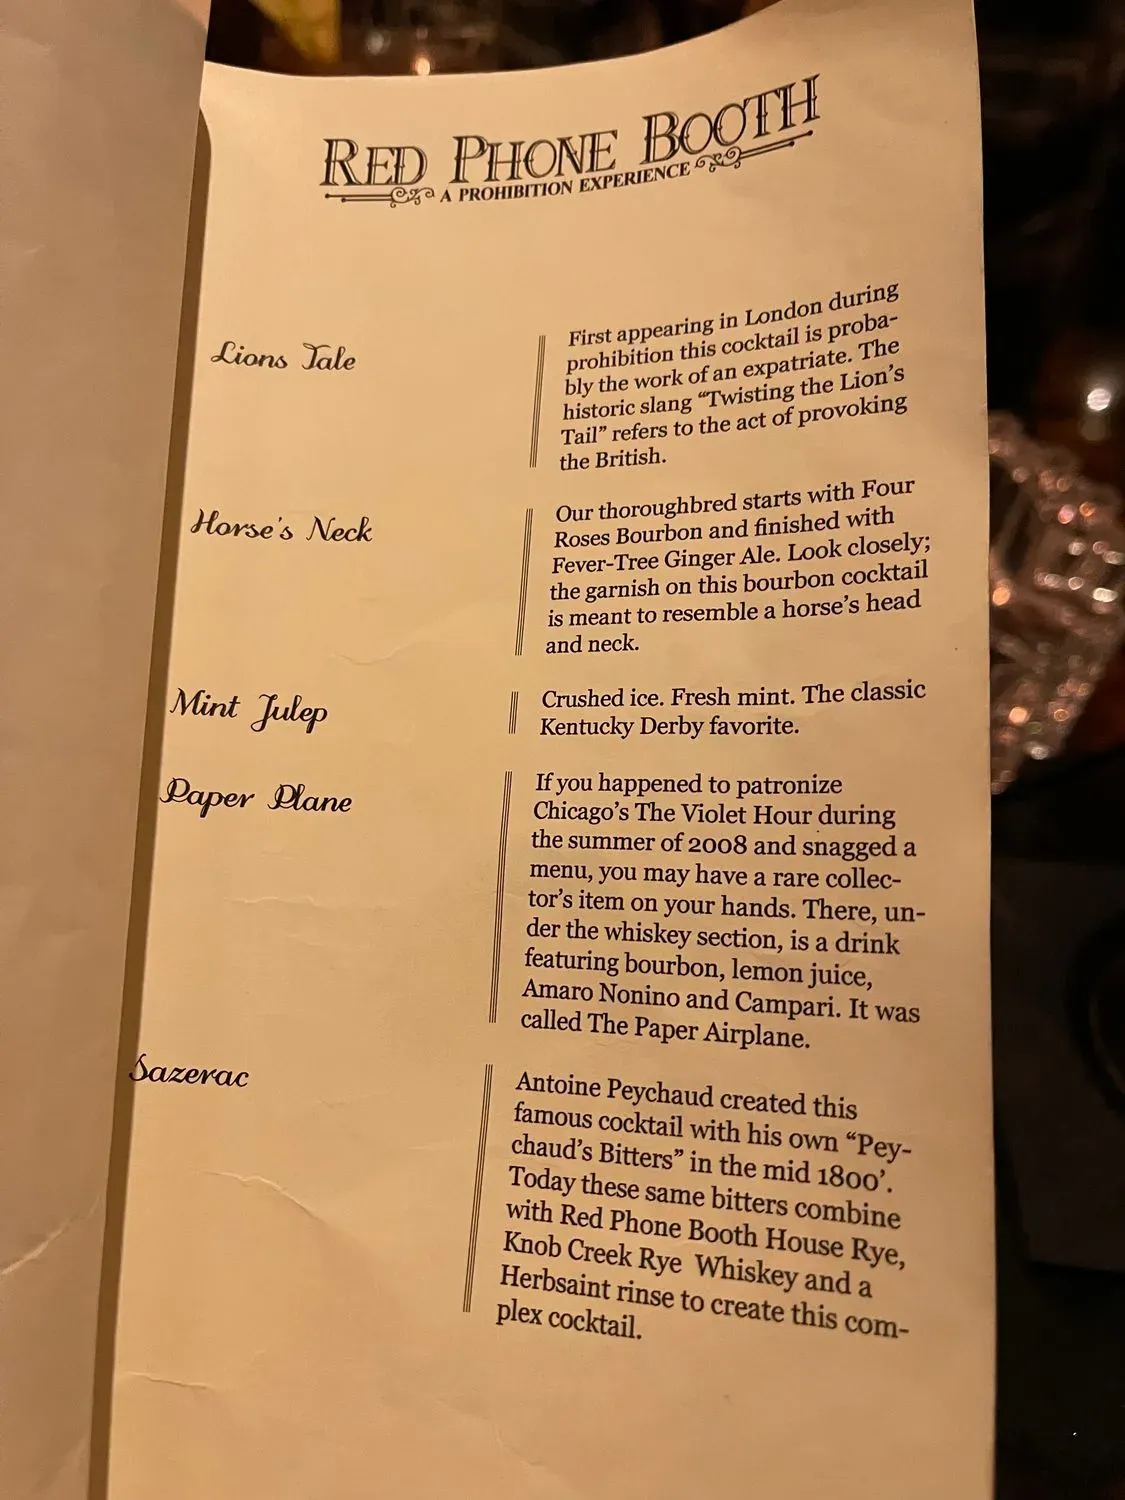 RED PHONE BOOTH
A PROHIBITION EXPERIENCE
Lions Tale
First appearing in London during
prohibition this cocktail is proba-
bly the work of an expatriate. The
historic slang “Twisting the Lion’s
Tail” refers to the act of provoking
the British.
Horse's Neck
Our thoroughbred starts with Four
Roses Bourbon and finished with
Fever-Tree Ginger Ale. Look closely;
the garnish on this bourbon cocktail
is meant to resemble a horse’s head
and neck.
Mint Julep
Crushed ice. Fresh mint. The classic
Kentucky Derby favorite.
Paper Plane
If you happened to patronize
Chicago’s The Violet Hour during
the summer of 2008 and snagged a
menu, you may have a rare collec-
tor’s item on your hands. There, un-
der the whiskey section, is a drink
featuring bourbon, lemon juice,
Amaro Nonino and Campari. It was
called The Paper Airplane.
Sazerac
Antoine Peychaud created this
famous cocktail with his own “Pey-
chaud’s Bitters” in the mid 1800’.
Today these same bitters combine
with Red Phone Booth House Rye,
Knob Creek Rye Whiskey and a
Herbsaint rinse to create this com-
plex cocktail.